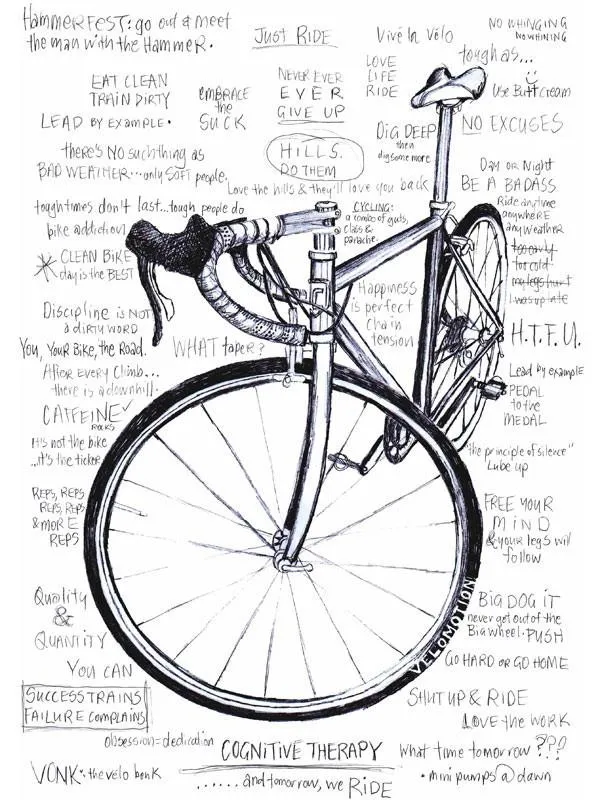 HAMMERFEST: go out & meet
the man with the HAMMER.
JUST RIDE
Vive Le Velo
NO WHINGING
NO WHINING
tough as...
LOVE
LIFE
RIDE
NEVER EVER
EVER
GIVE UP
EAT CLEAN
TRAIN DIRTY
EMBRACE
the
SUCK
Use Butt Cream
LEAD BY EXAMPLE.
NO EXCUSES
DIG DEEP
then
dig some more
HILLS.
DO THEM
there's NO such thing as
BAD WEATHER...only SOFT people.
Day or Night
BE A BADASS
Love the hills & they'll love you back
Ride anytime
anywhere
any weather
tough times don't last...tough people do
CYCLING:
a combo of guts,
class &
panache.
bike addiction
too early
too cold
my legs hurt
I was up late
CLEAN BIKE
day is the BEST
Happiness
is perfect
chain
tension
Discipline is NOT
a DIRTY WORD
H.T.F.U.
YOU, YOUR BIKE, the ROAD.
WHAT taper?
AFTER EVERY Climb...
there is a downhill.
Lead by example
PEDAL
to the
MEDAL
CAFFEINE
ROCKS
It's not the bike
...it's the ticker
"the principle of silence"
Lube up
REPS, REPS
REPS, REPS
& MORE
REPS
FREE YOUR
MIND
& your legs will
follow
Quality
&
QUANTITY
BIG DOG IT
never get out of the
Big wheel. PUSH
VELOMOTION
YOU CAN
GO HARD OR GO HOME
SUCCESS TRAINS
FAILURE COMPLAINS
SHUT UP & RIDE
LOVE the WORK
obsession = dedication
COGNITIVE THERAPY
What time tomorrow ???
VONK: the velo bonk
• mini pumps @ dawn
......and tomorrow, we RIDE